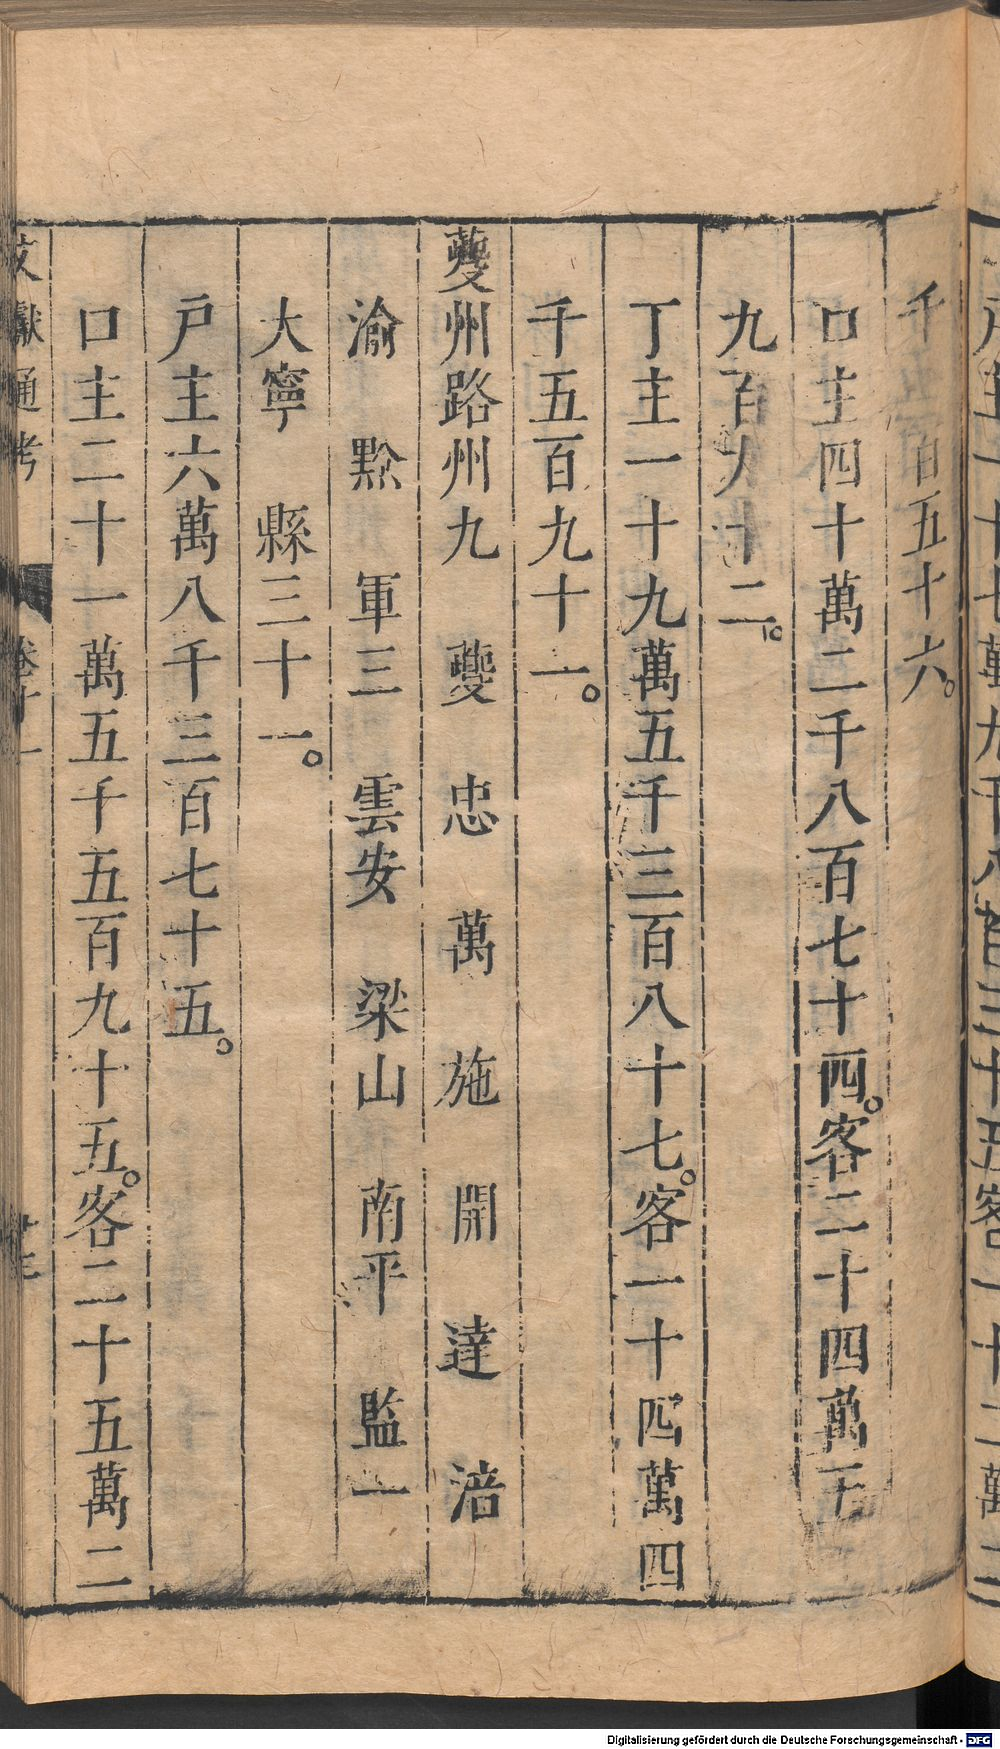 千五百五十六。
口主四十萬二千八百七十四。客二十四萬千
九百九十二。
丁主一十九萬五千三百八十七。客一十四萬四
千五百九十一。
夔州路州九　夔　忠　萬　施　開　達　涪
渝　黔　軍三　雲安　梁山　南平　監一
大寧　縣三十一。
戸主六萬八千三百七十五。
口主二十一萬五千五百九十五。客二十五萬二
文獻通考　卷十一
Digitalisierung gefördert durch die Deutsche Forschungsgemeinschaft - DFG